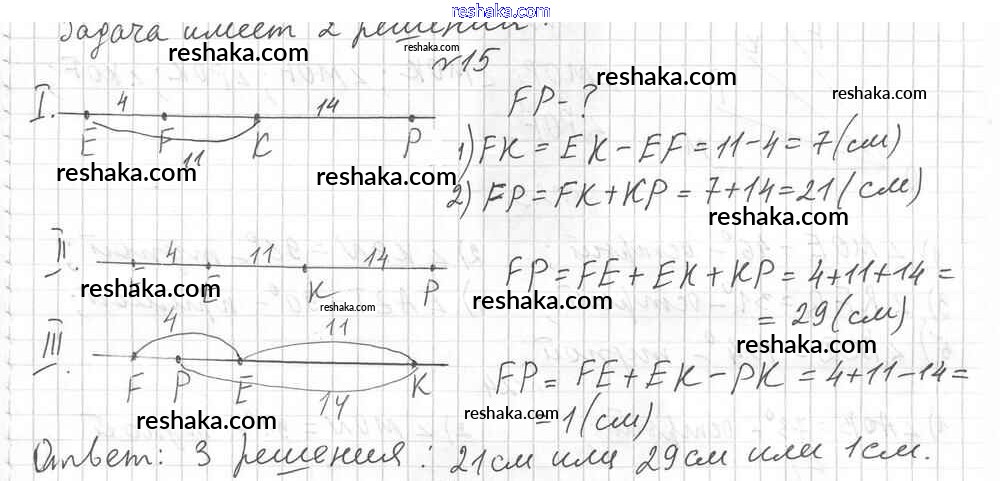 reshaka.com
Задача имеет 2 решения.
reshaka.com
reshaka.com
№15
reshaka.com
reshaka.com
I. 4 14
E F K P
11
FP-?
1) FK = EK - EF = 11 - 4 = 7 (см)
reshaka.com
reshaka.com
2) FP = FK + KP = 7 + 14 = 21 (см)
reshaka.com
II. 4 11 14
F E K P
reshaka.com
reshaka.com
FP = FE + EK + KP = 4 + 11 + 14 =
reshaka.com
= 29 (см)
reshaka.com
III. 4 11
F P E K
14
FP = FE + EK - PK = 4 + 11 - 14 =
reshaka.com
reshaka.com
= 1 (см)
reshaka.com
Ответ: 3 решения: 21см или 29см или 1см.